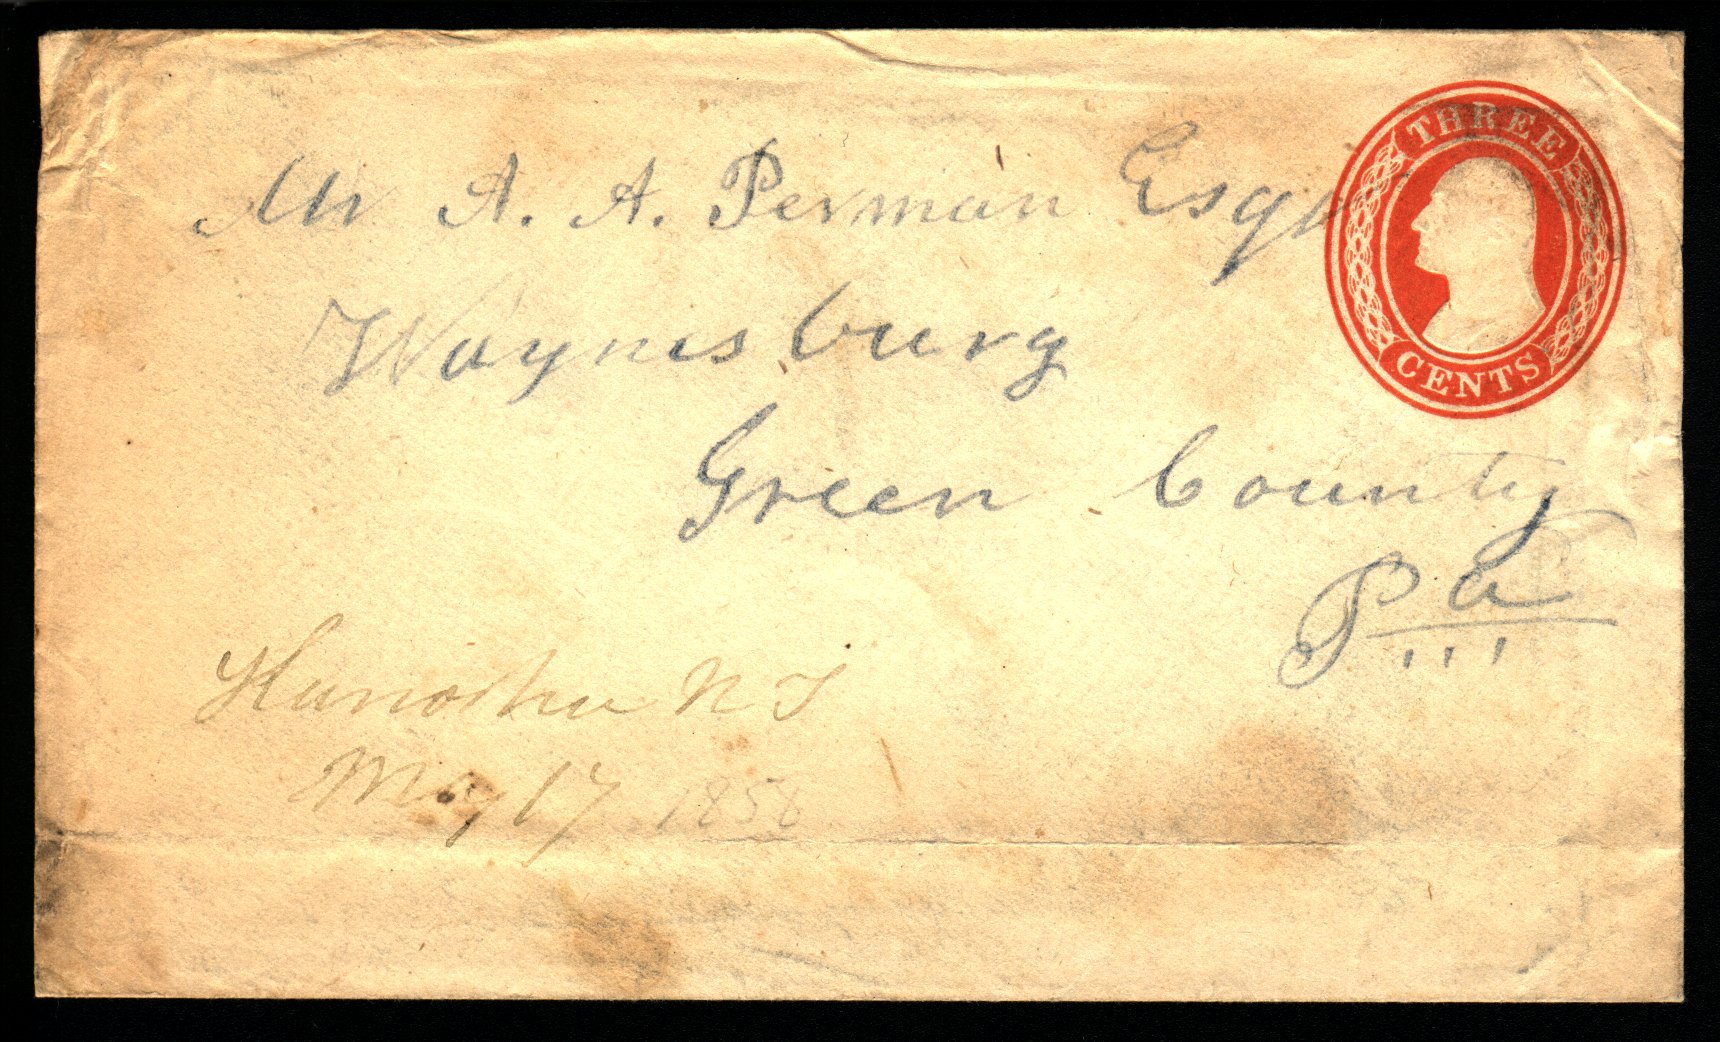 Mr A. A. Perman Esqr
THREE
CENTS
Waynesburg
Green County
Pa
Kanosha N T
May 17 1858